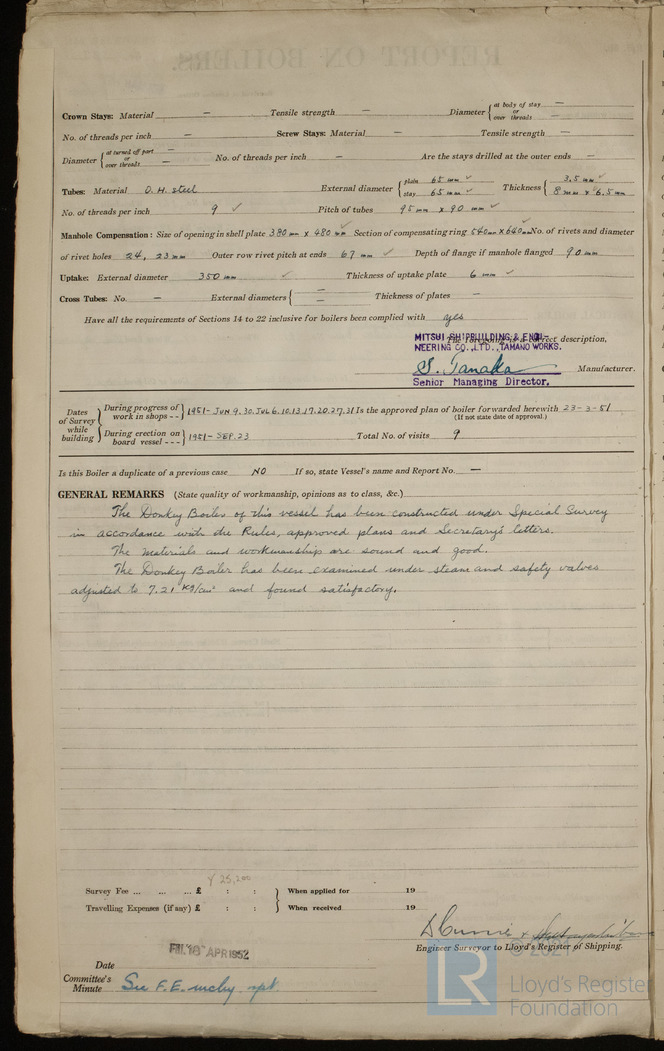 Crown Stays: Material — Tensile strength — Diameter { at body of stay — or over threads —
No. of threads per inch — Screw Stays: Material — Tensile strength —
Diameter { at turned off part — or over threads — No. of threads per inch — Are the stays drilled at the outer ends —
Tubes: Material O.H. steel External diameter { plain 65 mm ✓ stay 65 mm ✓ Thickness { 3.5 mm ✓ 8 mm & 6.5 mm
No. of threads per inch 9 ✓ Pitch of tubes 95 mm x 90 mm ✓
Manhole Compensation: Size of opening in shell plate 380 mm x 480 mm Section of compensating ring 540 mm x 640 mm No. of rivets and diameter
of rivet holes 24, 23 mm Outer row rivet pitch at ends 67 mm ✓ Depth of flange if manhole flanged 90 mm
Uptake: External diameter 350 mm ✓ Thickness of uptake plate 6 mm ✓
Cross Tubes: No. — External diameters { — — Thickness of plates —
Have all the requirements of Sections 14 to 22 inclusive for boilers been complied with yes
The foregoing is a correct description,
MITSUI SHIPBUILDING & ENGI-
NEERING CO., LTD., TAMANO WORKS.
S. Tanaka Manufacturer.
Senior Managing Director.
Dates of Survey while building { During progress of work in shops - - } 1951- JUN 9. 30. JUL 6. 10. 13. 17. 20. 27. 31 Is the approved plan of boiler forwarded herewith 23-3-51
(If not state date of approval.)
{ During erection on board vessel - - - } 1951- SEP. 23 Total No. of visits 9
Is this Boiler a duplicate of a previous case NO If so, state Vessel's name and Report No. —
GENERAL REMARKS (State quality of workmanship, opinions as to class, &c.)
The Donkey Boiler of this vessel has been constructed under Special Survey
in accordance with the Rules, approved plans and Secretary's letters.
The materials and workmanship are sound and good.
The Donkey Boiler has been examined under steam and safety valves
adjusted to 7.21 kg/cm² and found satisfactory.
¥ 25,200
Survey Fee ... ... ... £ : : } When applied for 19
Travelling Expenses (if any) £ : : } When received 19
Engineer Surveyor to Lloyd's Register of Shipping.
© 2021
FRI. 18 APR 1952
Date
Committee's Minute See F.E. mchy rpt.
LR
Lloyd's Register
Foundation